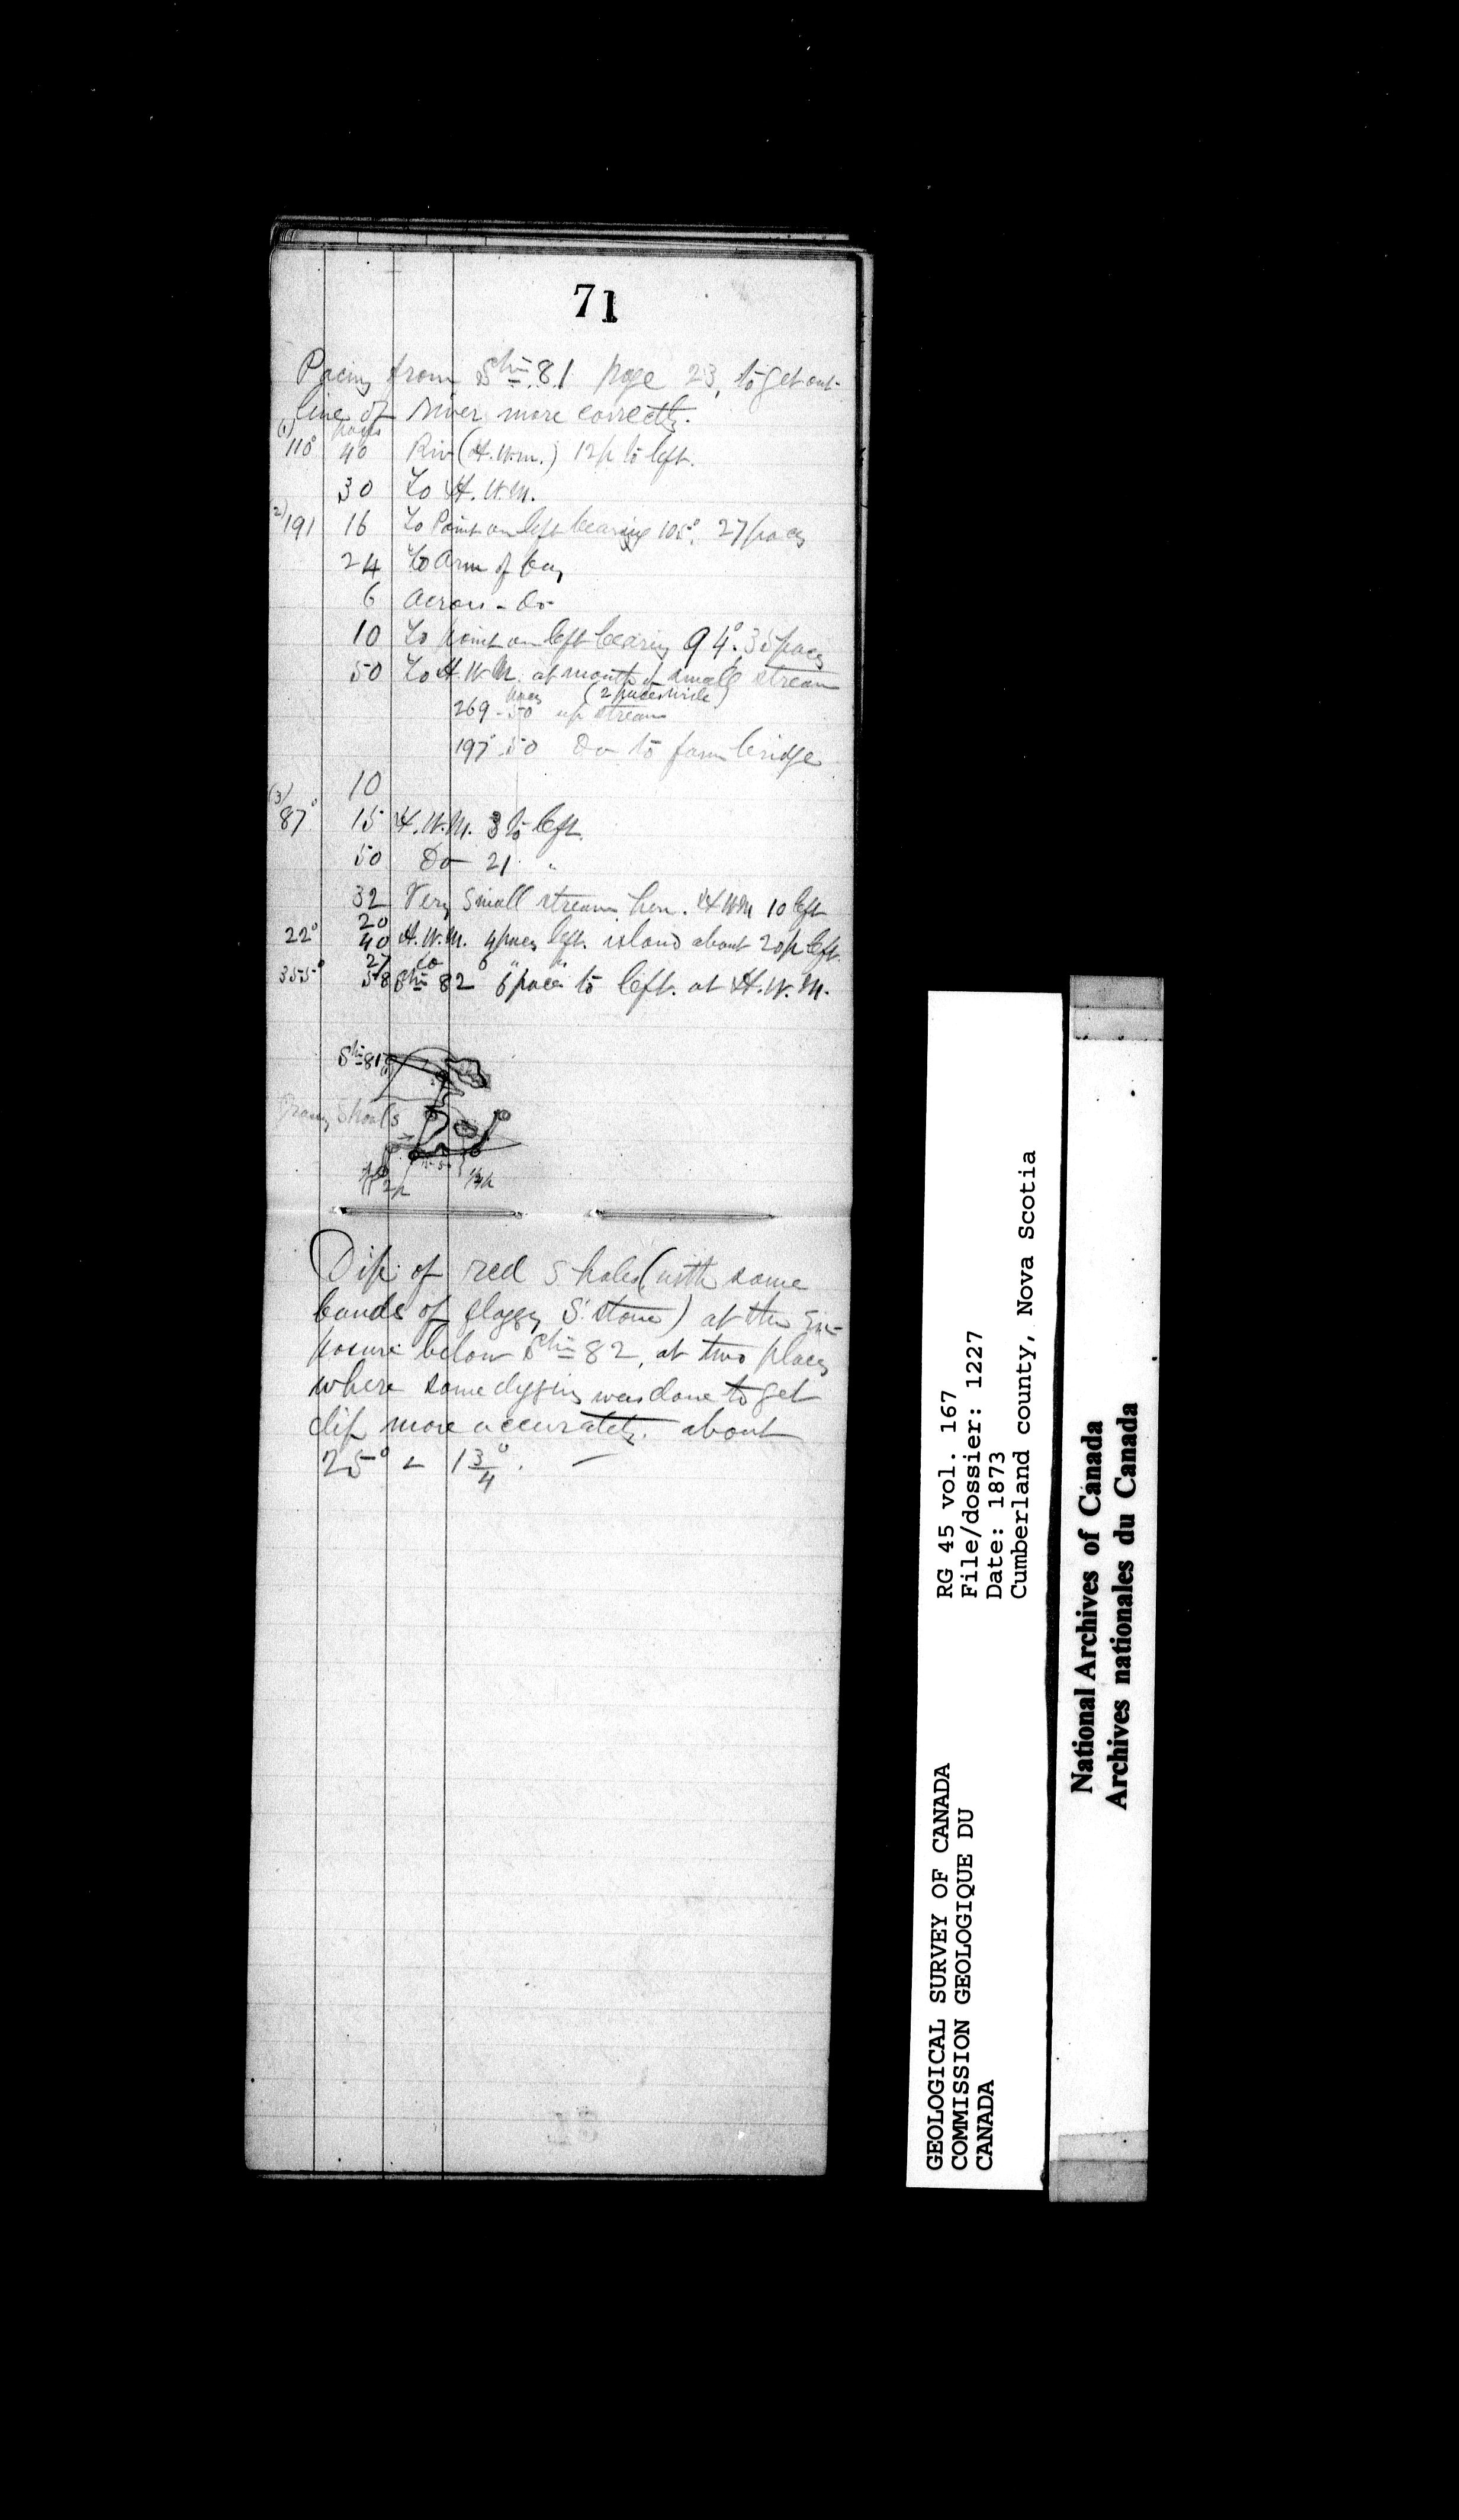 71
Pacing from Stn 81 page 23, to get out-
line of river more correctly.
paces
(1) 110° 40 Riv (H.W.M.) 12p to left.
30 To H.W.M.
(2) 191 16 To Point on left bearing 105°. 27 paces
24 To Arm of bay
6 Across - Do -
10 To point on left bearing 94°. 35 paces
50 To H.W.M. at mouth of small stream
(2 paces wide)
paces
269 - 50 up stream
197° 50 Do to farm bridge
10
(3) 87° 15 H.W.M. 3 to left.
50 Do 21 "
32 Very small stream here. H.W.M 10 left
20
22° 40 H.W.M. 4 paces left. island about 20p left.
27 do 6 "
355° 58 Stn 82 6 paces to left. at H.W.M.
Stn 81
Shoals
2p
Dip of red Shales (with some
bands of flaggy S. stone) at the Ex-
posure below Stn 82, at two places
where some digging was done to get
dip more accurately. about
25° ∠ 13/4°. —
RG 45 vol. 167
File/dossier: 1227
Date: 1873
Cumberland county, Nova Scotia
GEOLOGICAL SURVEY OF CANADA
COMMISSION GEOLOGIQUE DU
CANADA
National Archives of Canada
Archives nationales du Canada